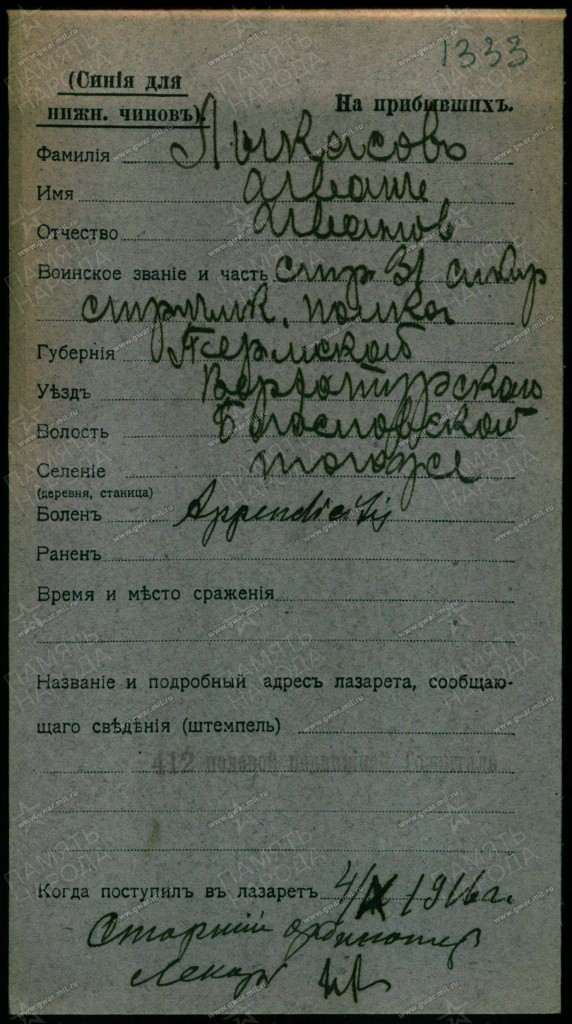 1333
(Синія для
нижн. чиновъ).
На прибывшихъ.
Фамилія Лыкасовъ
Имя Иванъ
Отчество Иванов
Воинское званіе и часть стр. 31 сибир
стрѣлк. полка
Губернія Пермской
Уѣздъ Верхотурскаго
Волость Богословской
Селеніе тогоже
(деревня, станица)
Боленъ Appendicitis
Раненъ
Время и мѣсто сраженія
Названіе и подробный адресъ лазарета, сообщаю-
щаго свѣдѣнія (штемпель)
412 полевой подвижной Госпиталь
Когда поступилъ въ лазаретъ 4/X 1916 г.
Старший ординатор
Лекарь